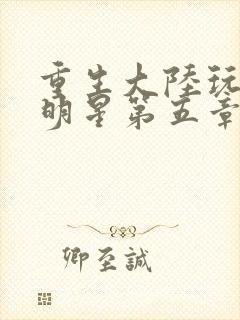 重生大陸玩
明星第五章
卿至誠